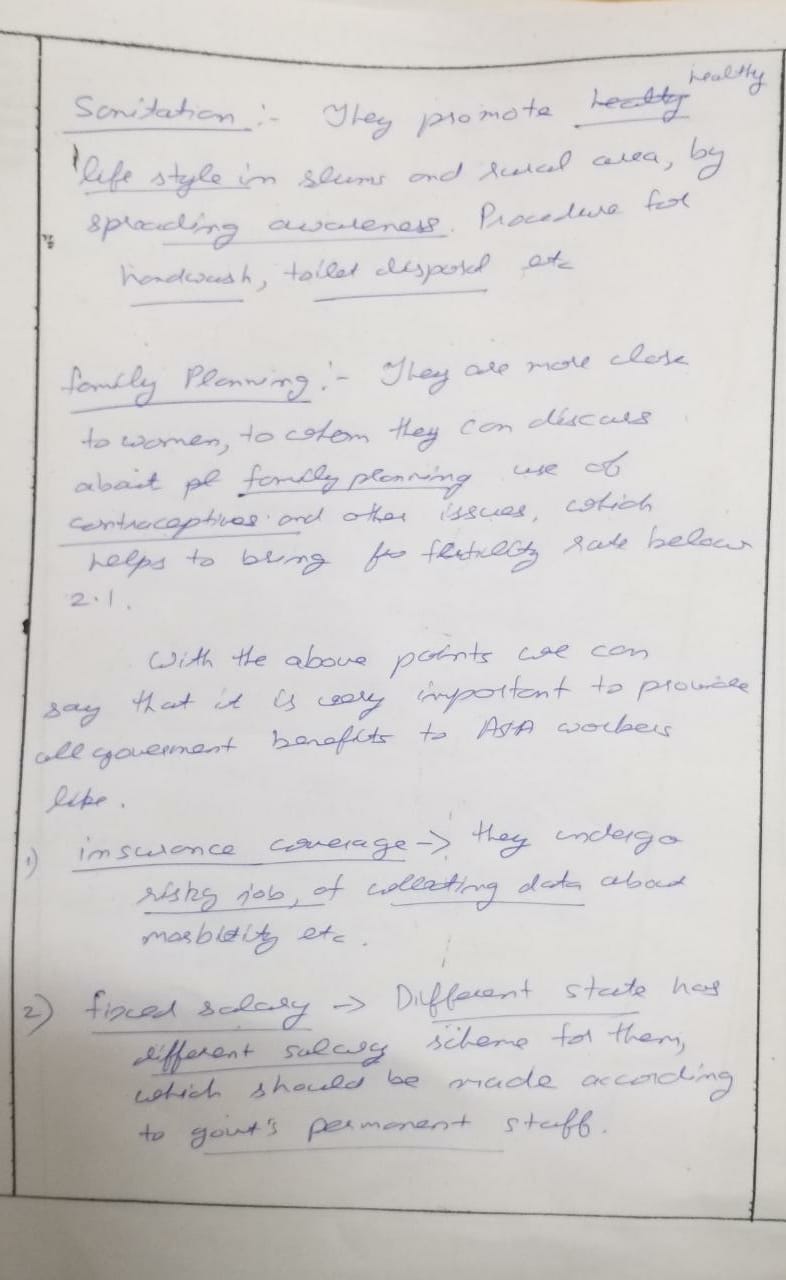 Sanitation :- They promote healthy healthy
life style in slums and rural area, by
spreading awareness. Procedure for
handwash, toilet disposal etc
family Planning :- They are more close
to women, to whom they can discuss
about pl family planning use of
contraceptives and other issues, which
helps to bring fertility rate below
2.1.
With the above points we can
say that it is very important to provide
all government benefits to ASA workers
like.
1) insurance coverage -> they undergo
risky job, of collecting data about
morbidity etc.
2) fixed salary -> Different state has
different salary scheme for them,
which should be made according
to govt's permanent staff.